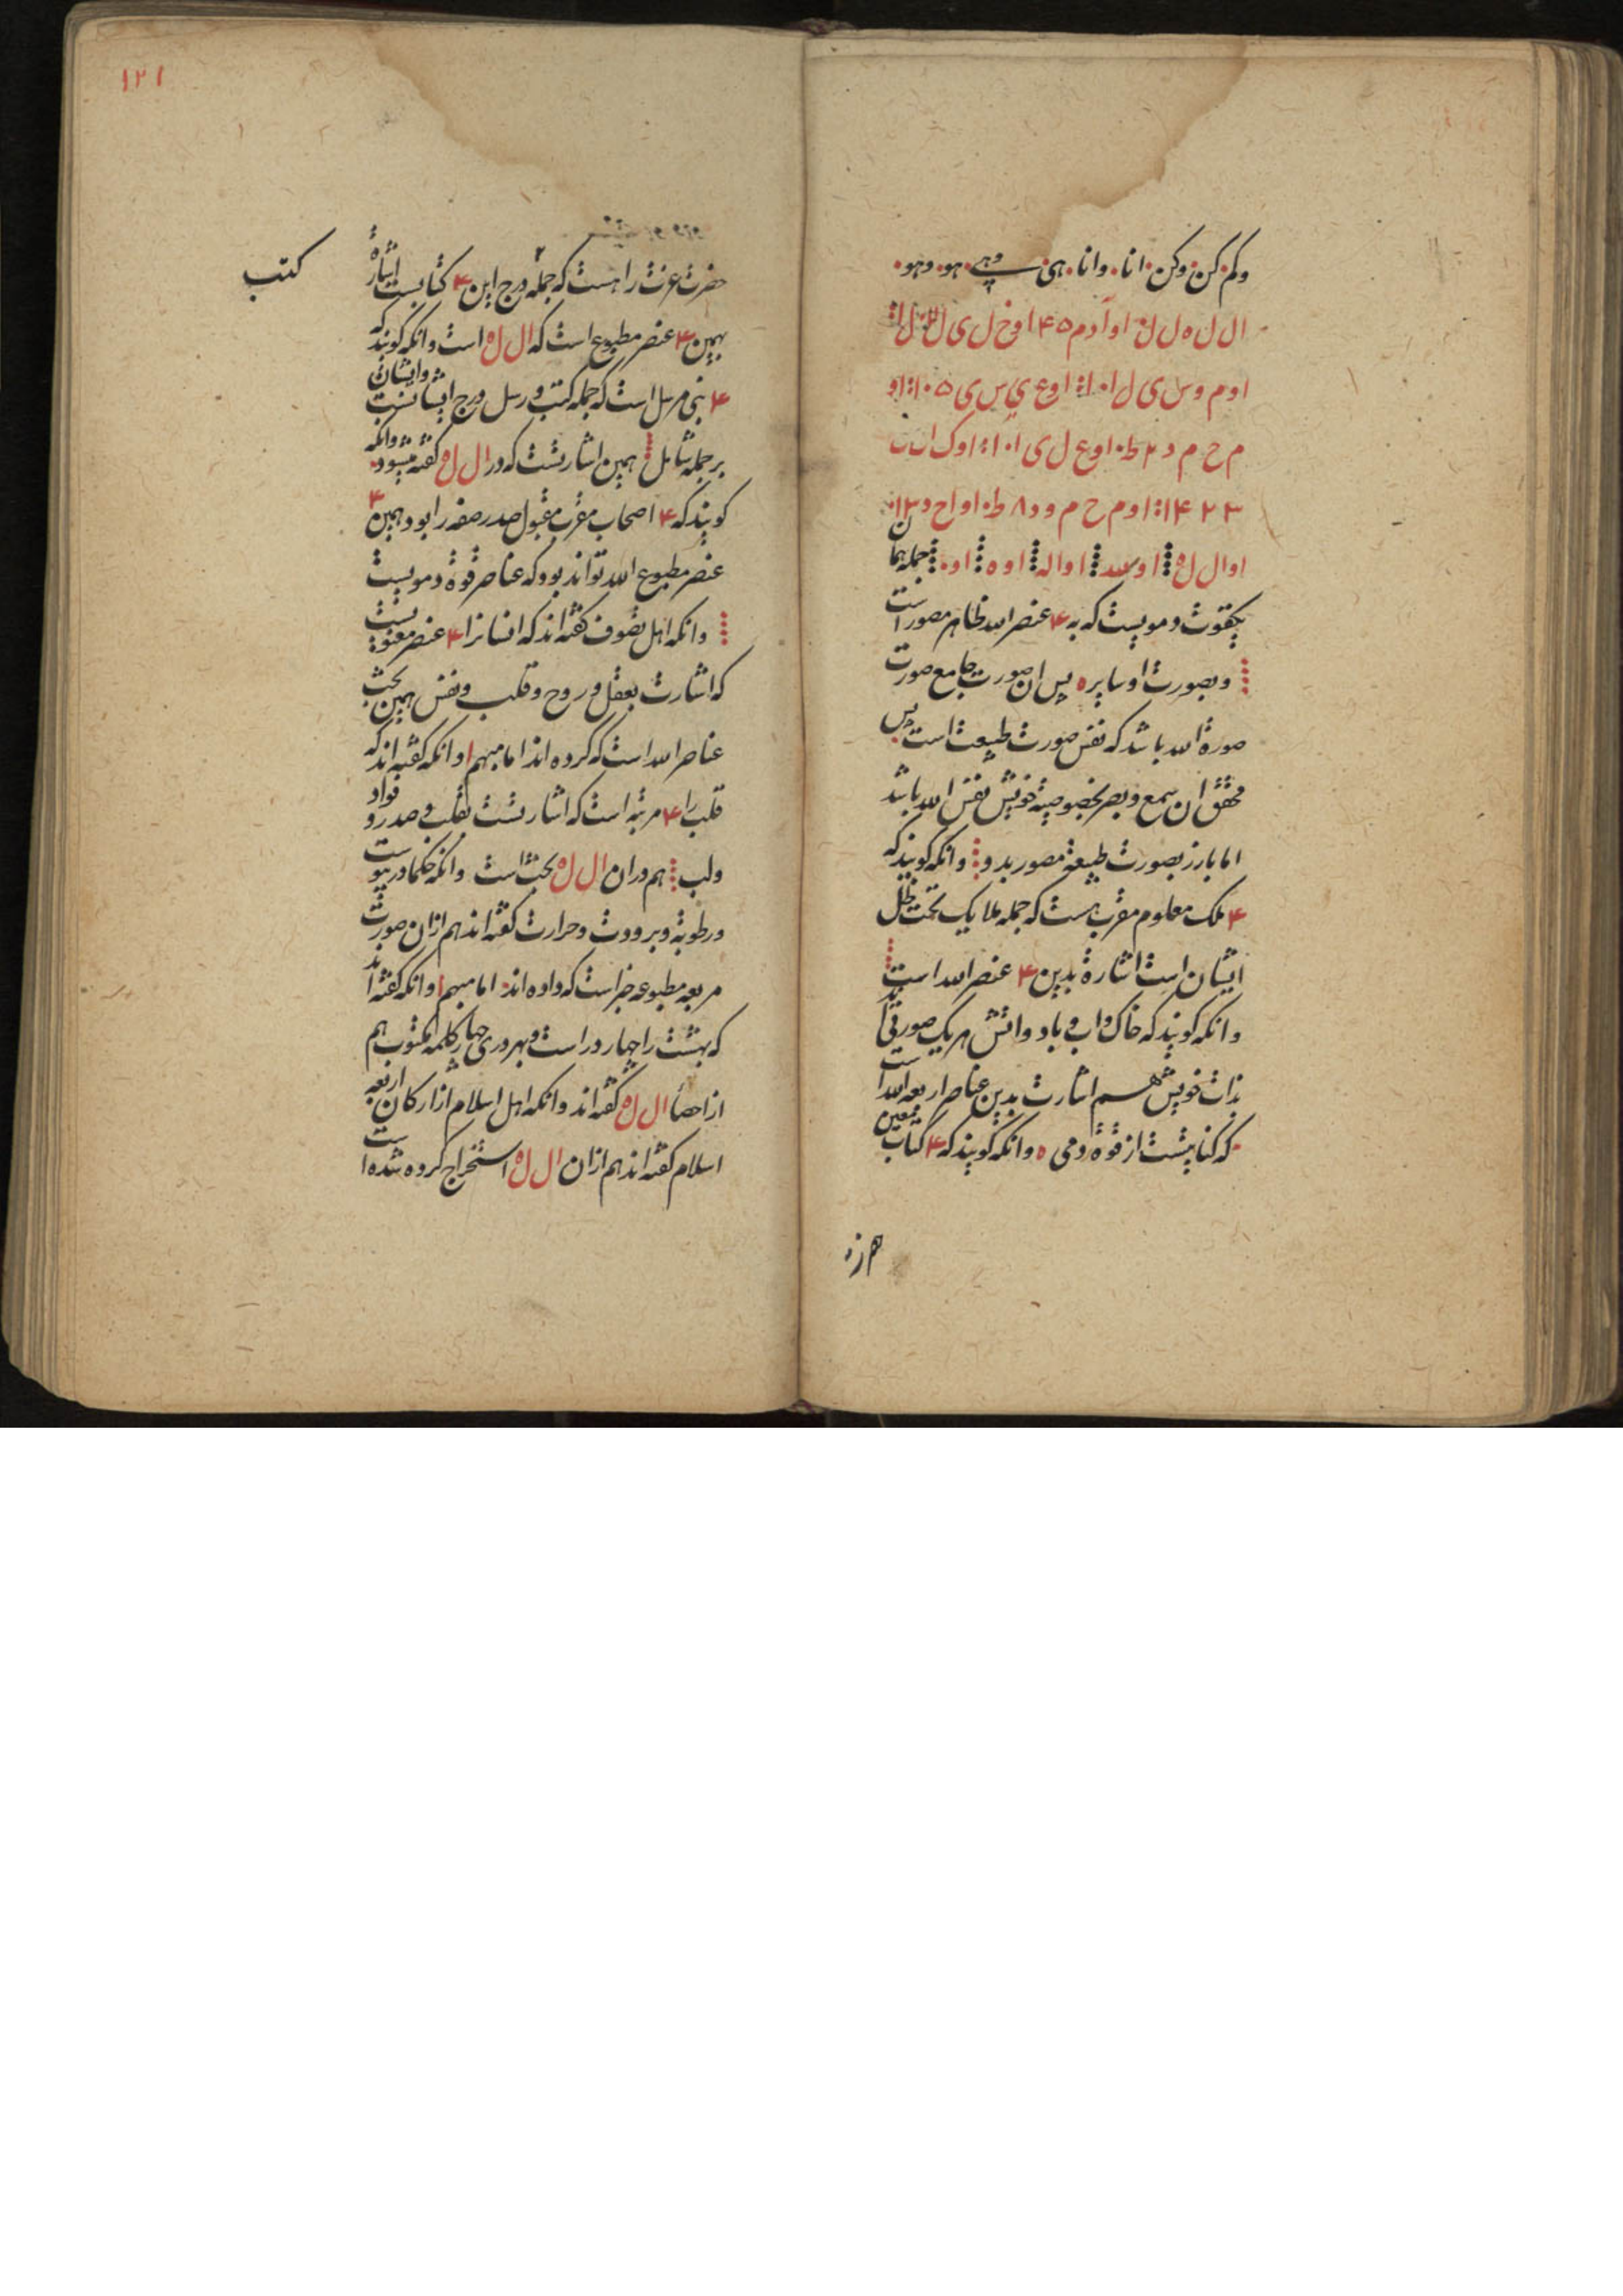 وکم کن وکن انا وانا هی وهی هو وهو
ال ل ه ل ل اوا دم ۴۵ اوخ ل ی ل
اوم وس ی ل ا اوع ی س ی
م ح م د ط اوع ل ی ا اوک
اوم ح م ود ط اواح د
اوال ل ه او اواله اوه او جمله همان
یکقوت دمویست که به ۴ عنصر الله ظاهر مصور است
وبصورت اوسایره پس ان صورت جامع صورت
صورة الله باشد که نفس صورت طبیعت است پس
محقق ان سمع وبصر بخصوصیة خویش نفس الله باشد
اما بارز بصورت طبیعة مصور بدو وانکه کویند که
۴ ملک معلوم مقرب هست که جمله ملایک تحت ظل
ایشان است اشارة بدین ۴ عنصر الله است
وانکه کویند که خاک واب و باد واتش هریک صورتی اند
بذات خویش هم اشارت بدین عناصر اربعه الله است
که کنایتست از قوة دمی ه وانکه کویند که ۴ کتاب معین
۱۲۱
حضرت عزت را هست که جمله درج این ۴ کتابست اشارة
بهمین ۴ عنصر مطبوع است که ال ل ه است وانکه کویند که
۴ نبی مرسل است که جمله کتب و رسل درج ایشانست وایشان
بر جمله شامل همین اشارتست که در ال ل ه کفته میشود وانکه
کویند که ۴ اصحاب مقرب مقبول صدر صفه را بود همین ۴
عنصر مطبوع الله تواند بود که عناصر قوة دمویست
وانکه اهل تصوف کفته اند که انسانرا ۴ عنصر معنویست
که اشارت بعقل و روح و قلب و نفس همین بحث
عناصر الله است که کرده اند اما مبهم وانکه کفته اند که
قلب را ۴ مرتبه است که اشارتست بقلب و صدر و فواد
ولب هم دران ال ل ه بحث است وانکه حکما در یبوست
ورطوبة وبرودت وحرارت کفته اند هم ازان صورت
مربعه مطبوعه خبر است که داده اند اما مبهم وانکه کفته اند
که بهشت را چهار در است وبهر دری چهار کلمه مکتوب هم
از احصأ ال ل ه کفته اند وانکه اهل اسلام از ارکان اربعه
اسلام کفته اند هم ازان ال ل ه استخراج کرده شده است
کتب